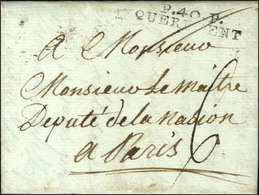 P.40.P.
QUERE ENT
A Monsieur
Monsieur le Maitre
Deputé de la Nasion
a Paris 6